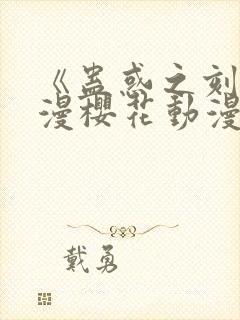 《蛊惑之刻
漫櫻花動漫
戴勇